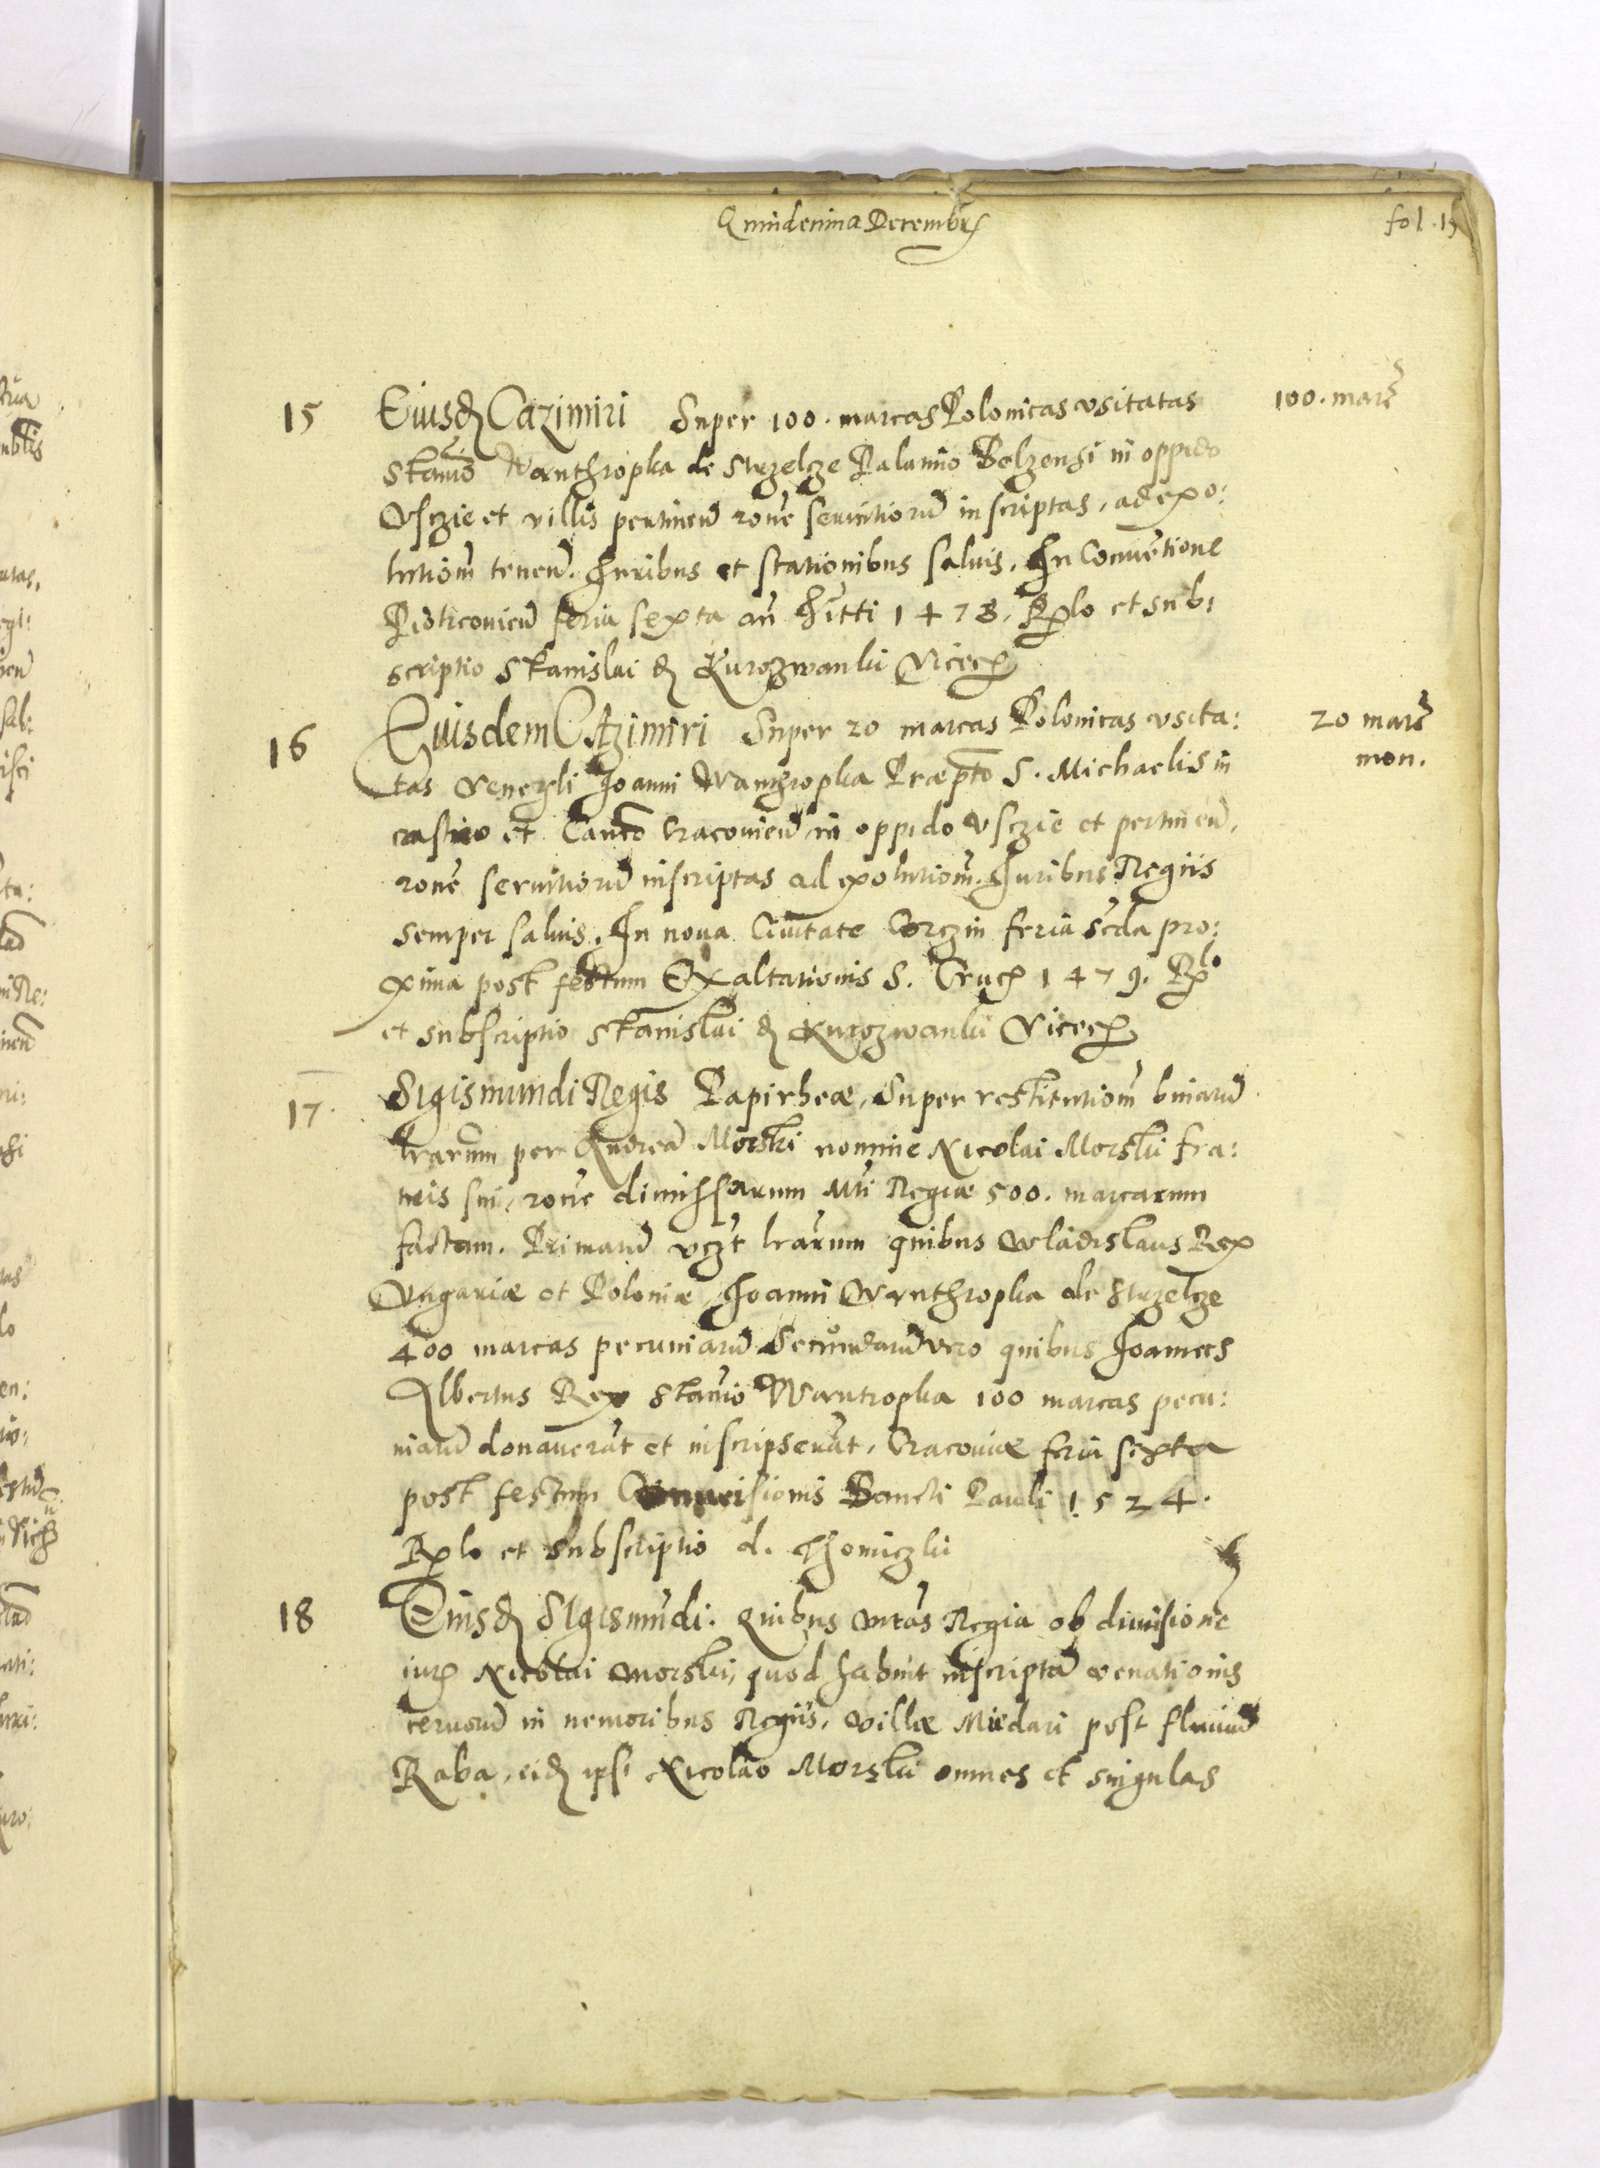 Quindecima Decembris
fol. 15
15 Eiusd Cazimiri Super 100. marcas Polonicas usitatas 100. marc
Stanio Wanthropka de Strzelcze Palatino Belzensi in oppido
Usczie et villis pertinen rone servitiorum inscriptas, ad exo:
lutiom tenen. Juribus et stationibus salvis. In Conventione
Piotrcovien feria sexta an Viti 1478. Rlo et sub:
scriptio Stanislai d Kurozwanki Vicecan
16 Eiusdem Cazimiri Super 20 marcas Polonicas usita: 20 marc
tas Venerli Joanni Wanthropka Praepto S. Michaelis in mon.
castro et Canco Cracovien in oppido Usczie et pertinen,
rone servitiorum inscriptas ad exolutiom. Juribus Regiis
semper salvis. In nova Civitate Corczin feria scda pro:
xima post festum Exaltationis S. Crucis 1479. Rlo
et subscriptio Stanislai d Kurozwanki Vicecan
17. Sigismundi Regis Papirheae, Super restitutiom binarum
lrarum per Andrea Morski nomine Nicolai Morski fra:
tris sui, rone dimissarum Mti Regiae 500. marcarum
factam. Primarum vczt lrarum quibus Wladislaus Rex
Ungariae et Poloniae, Joanni Wanthropka de Strzelcze
400 marcas pecuniarum Secundarum vero quibus Joannes
Albertus Rex Stanio Wantropka 100 marcas pecu:
niarum donaverut et inscripserut, Cracoviae feria sexta
post festum Conversionis Sancti Pauli 1524.
Rlo et subscriptio d. Chomiczki
18 Eiusd Sigismudi. Quibus Mtas Regia ob divisione
iuris Nicolai Morski, quod habuit inscriptu venationis
cervorum in nemoribus Regiis, villae Miedari post fluvium
Raba, eid ipsi Nicolao Morski omnes et singulas